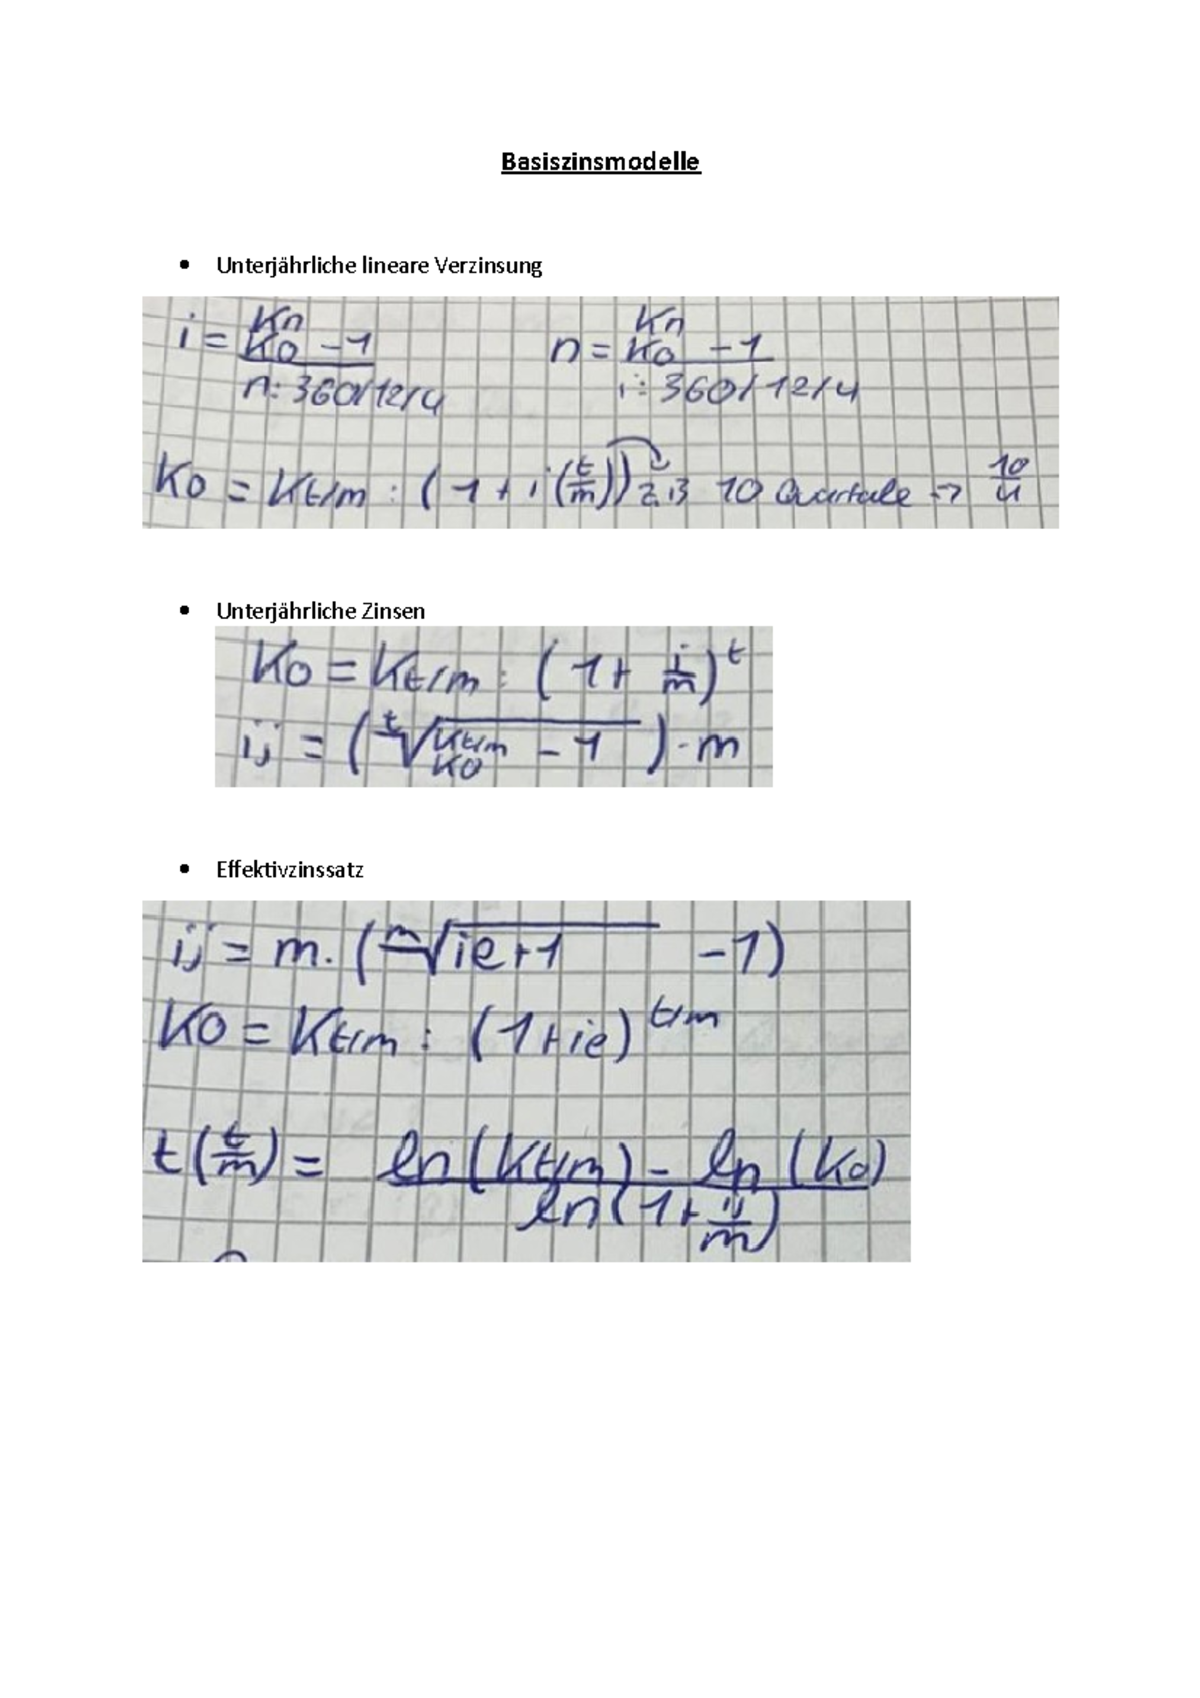 Basiszinsmodelle
• Unterjährliche lineare Verzinsung
i = Kn/K0 - 1 / n: 360/12/4    n = Kn/K0 - 1 / i: 360/12/4
K0 = Kt/m : (1 + i(t/m)) z.B 10 Quartale → 10/4
• Unterjährliche Zinsen
K0 = Kt/m : (1 + i/m)^t
ij = (t√Kt/m/K0 - 1) · m
• Effektivzinssatz
ij = m · (m√ie+1 - 1)
K0 = Kt/m : (1+ie)^t/m
t(t/m) = ln(Kt/m) - ln(K0) / ln(1 + ij/m)